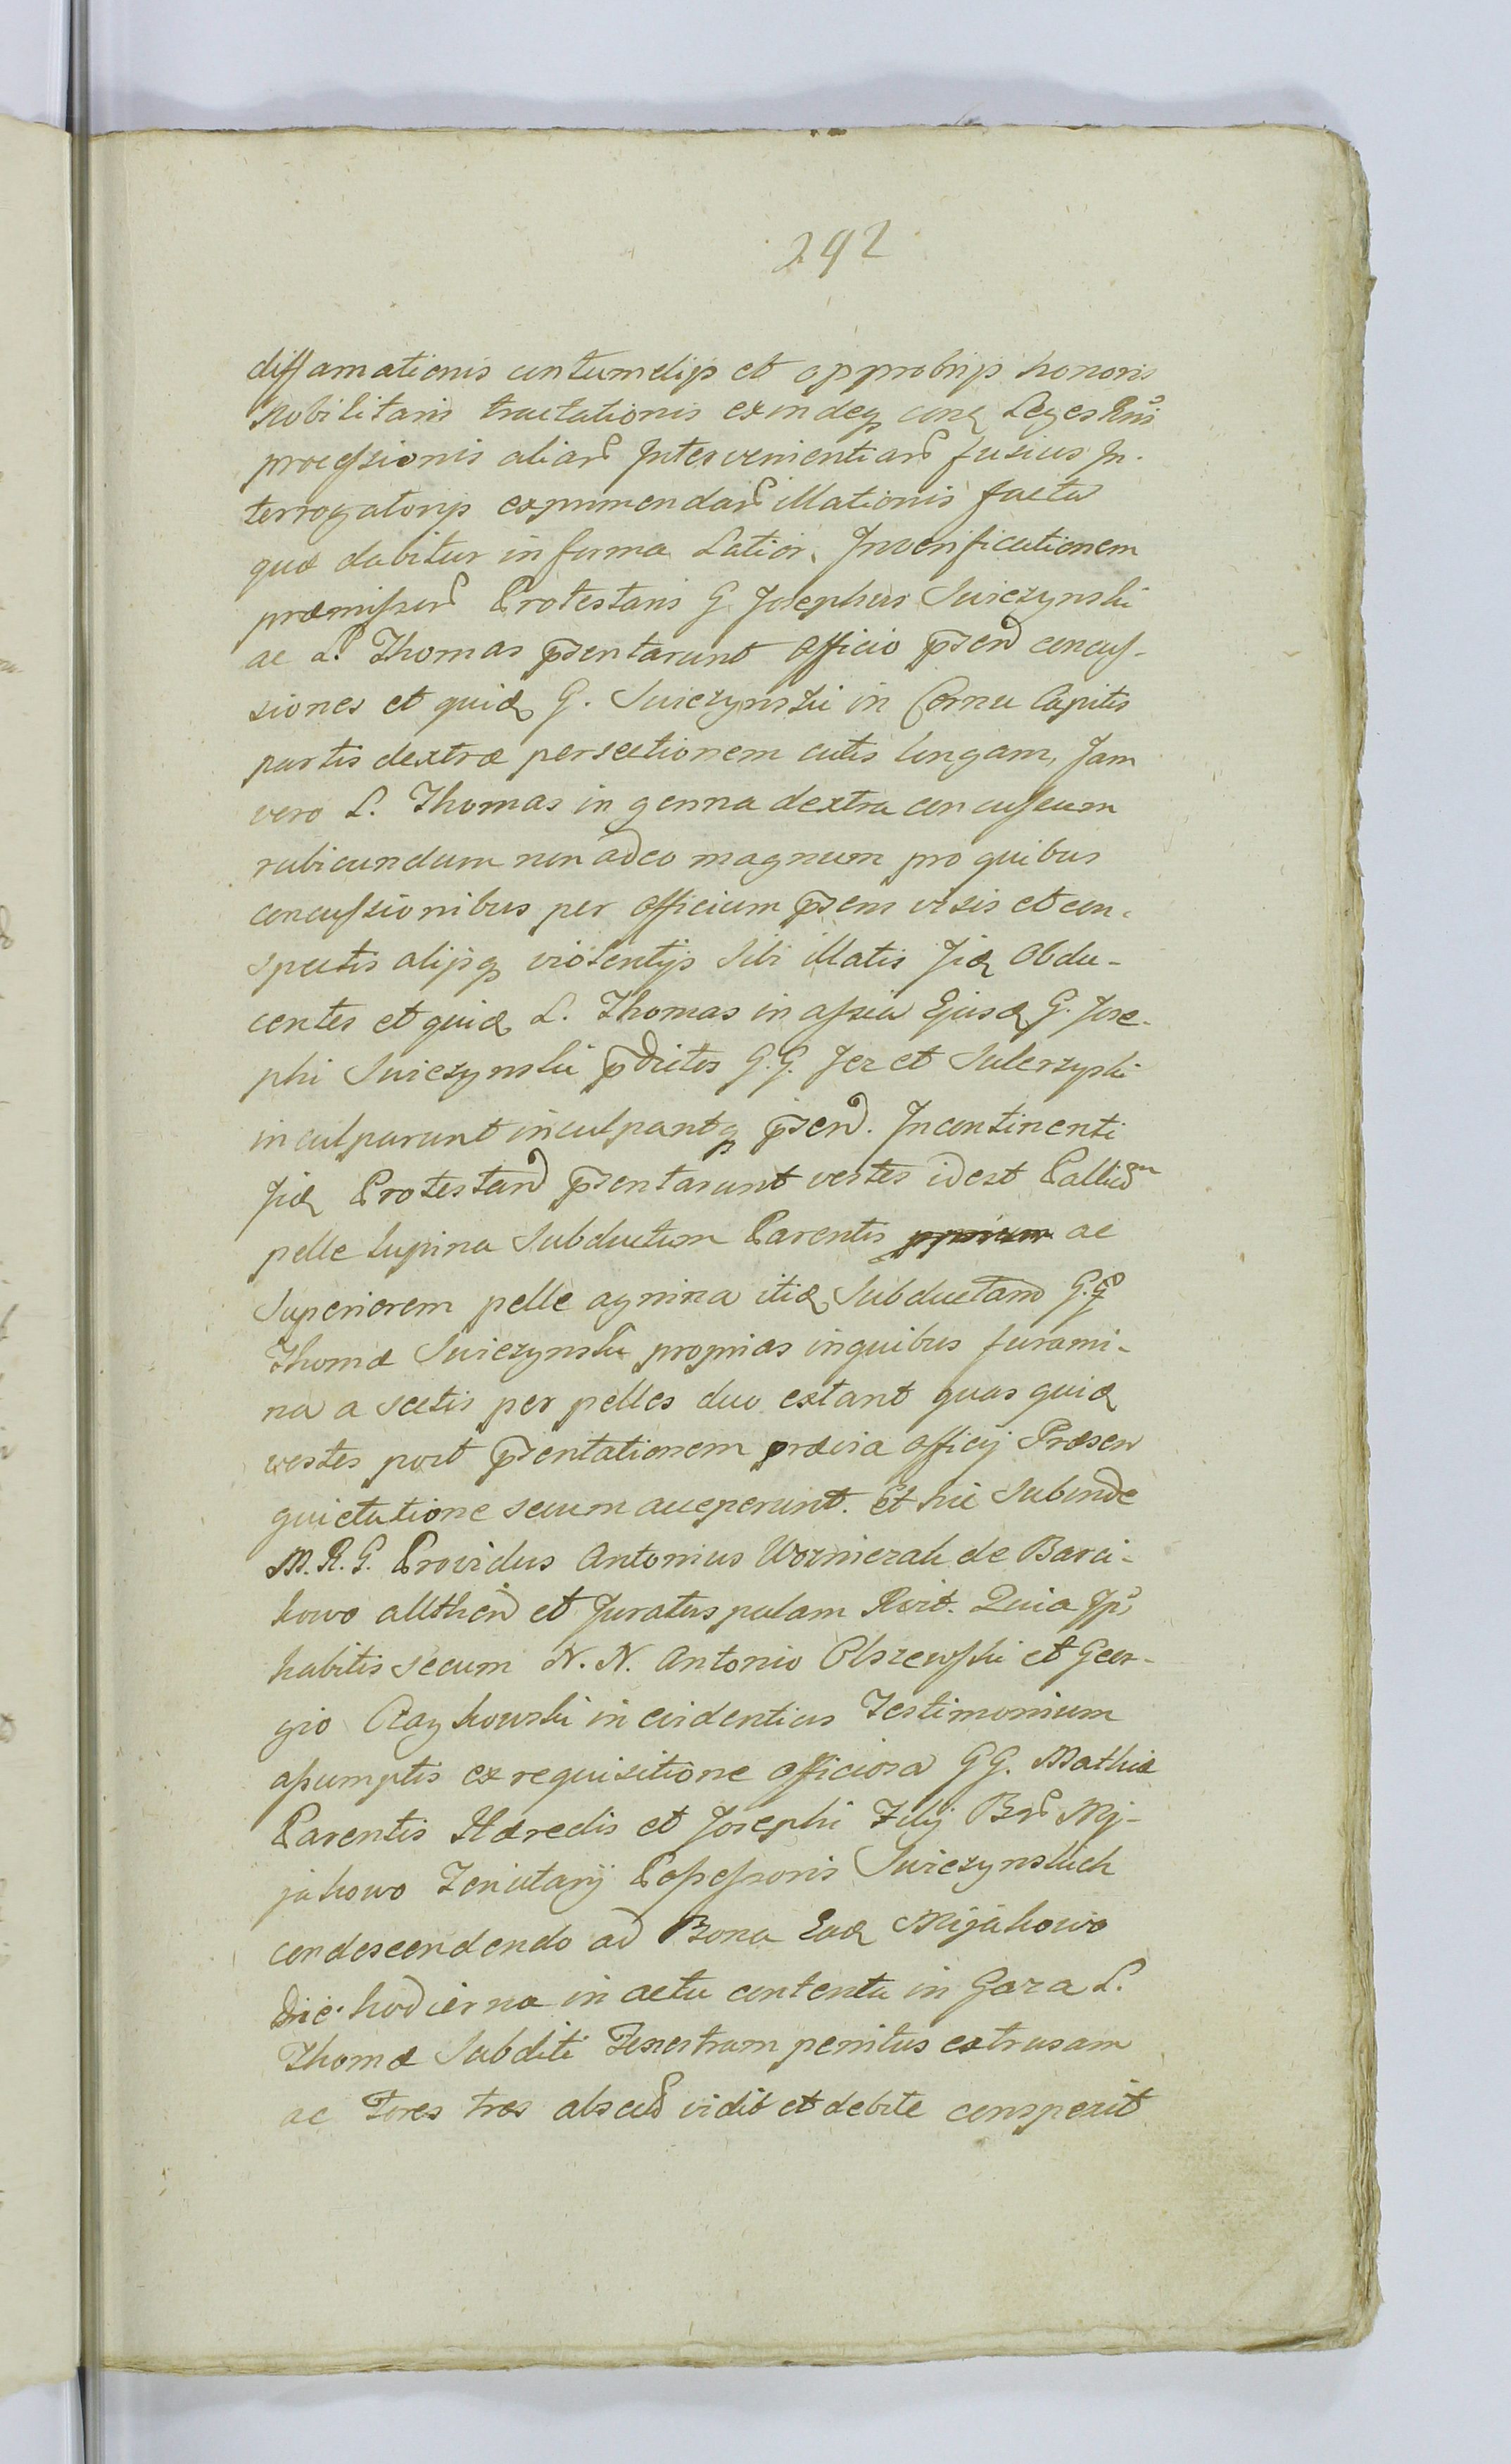 292
diffamationis contumelijs et opprobrijs honoris
Nobilitaris tractationis exindeq contra Leges Rni
processionis aliar Intervenientiar fusius In-
terrogatorijs exprimendar illationis facta
quæ dabitur in forma Latior. Inverificationem
præmissor Protestans G Josephus Swiezynski
ac L. Thomas psentarunt Officio psen concus-
siones et quid G. Swiezynski in Cornu Capitis
partis dextræ persectionem cutis longam, Jam
vero L. Thomas in genna dextra concussum
rubicundum non adeo magnum pro quibus
concussionibus per Officium psens visis et con-
spectis alijsq violentijs Sibi illatis Jid Obdu-
centes et quid L. Thomas in assia Ejusd G. Jose-
phi Swiezynski pdictos G.G. Jez et Sulerzyski
inculparunt inculpantq psen. Incontinenti
Jid Protestan psentarunt vestes idest Pallium
pelle lupina Subductum Parentis pprium ac
Superiorem pelle agnina itid Subductam G.G
Thomæ Swiezynski proprias inquibus forami-
na a sectis per pelles duo extant quas quid
vestes post psentationem prævia Officij Præsen
quietatione secum acceperunt. Et hic Subinde
M.R.G. Providus Antonius Wozniezak de Barci-
kowo allthen et Juratus palam Rvit. Quia Jps
habitis secum N.N. Antonio Olszewski et Geor-
gio Czaykowski in evidentius Testimonium
assumptis ex requisitione officiosa GG. Mathiæ
Parentis Hæredis et Josephi Filij Bnr Mij-
jakowo Tenutarij Possessoris Swiezynskich
condescendendo ad Bona Ead Mijakowo
die hodierna in actu contenta in Gaza L.
Thomæ Subditi Fenestram penitus extrusam
ac Fores tres absciss vidit et debite conspexit